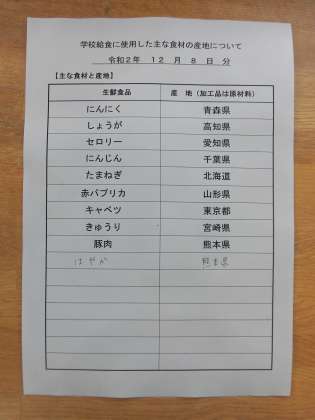 学校給食に使用した主な食材の産地について
令和2年 12月 8日 分
【主な食材と産地】
生鮮食品 産 地（加工品は原材料）
にんにく 青森県
しょうが 高知県
セロリー 愛知県
にんじん 千葉県
たまねぎ 北海道
赤パプリカ 山形県
キャベツ 東京都
きゅうり 宮崎県
豚肉 熊本県
熊本県